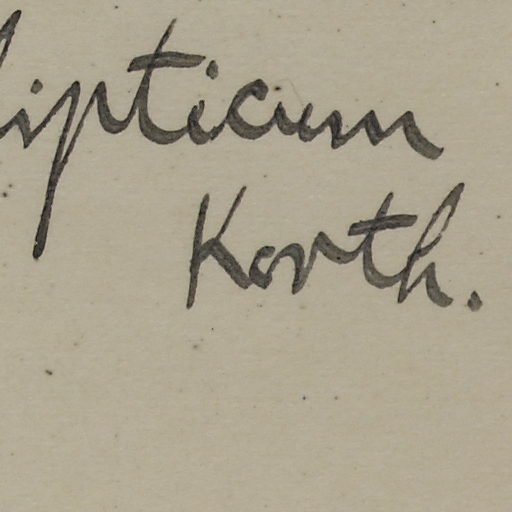 lipticum
Korth.